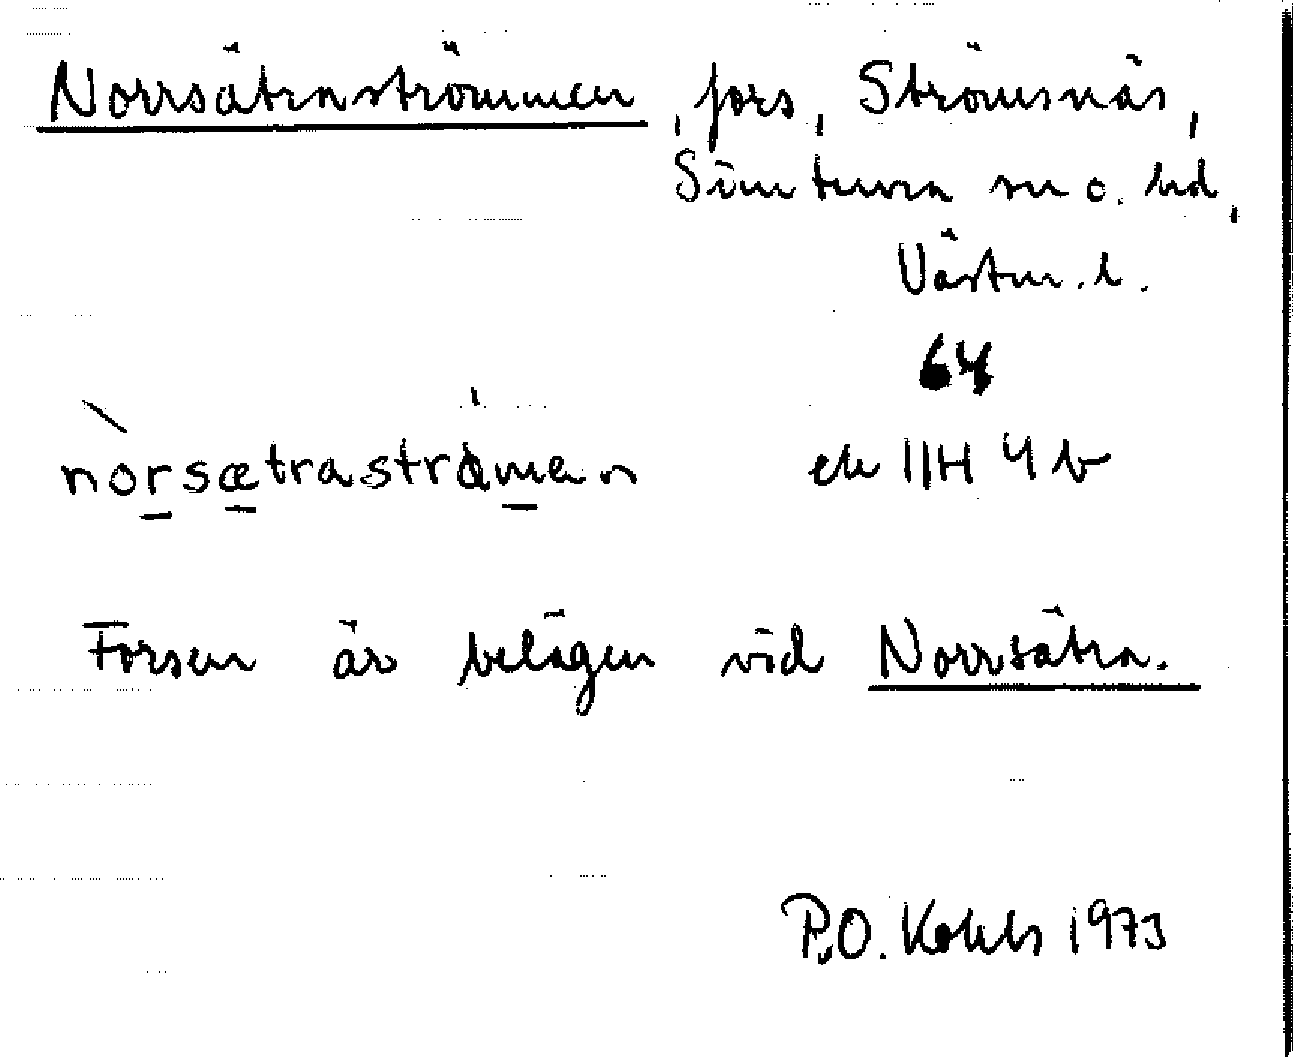 Norrsätraströmmen, fors, Strömsnäs,
Simtuna sn o. hd,
Västm. l.
64
norsætraströmen ek 11H 4b
Forsen är belägen vid Norrsätra.
P.O. 1973